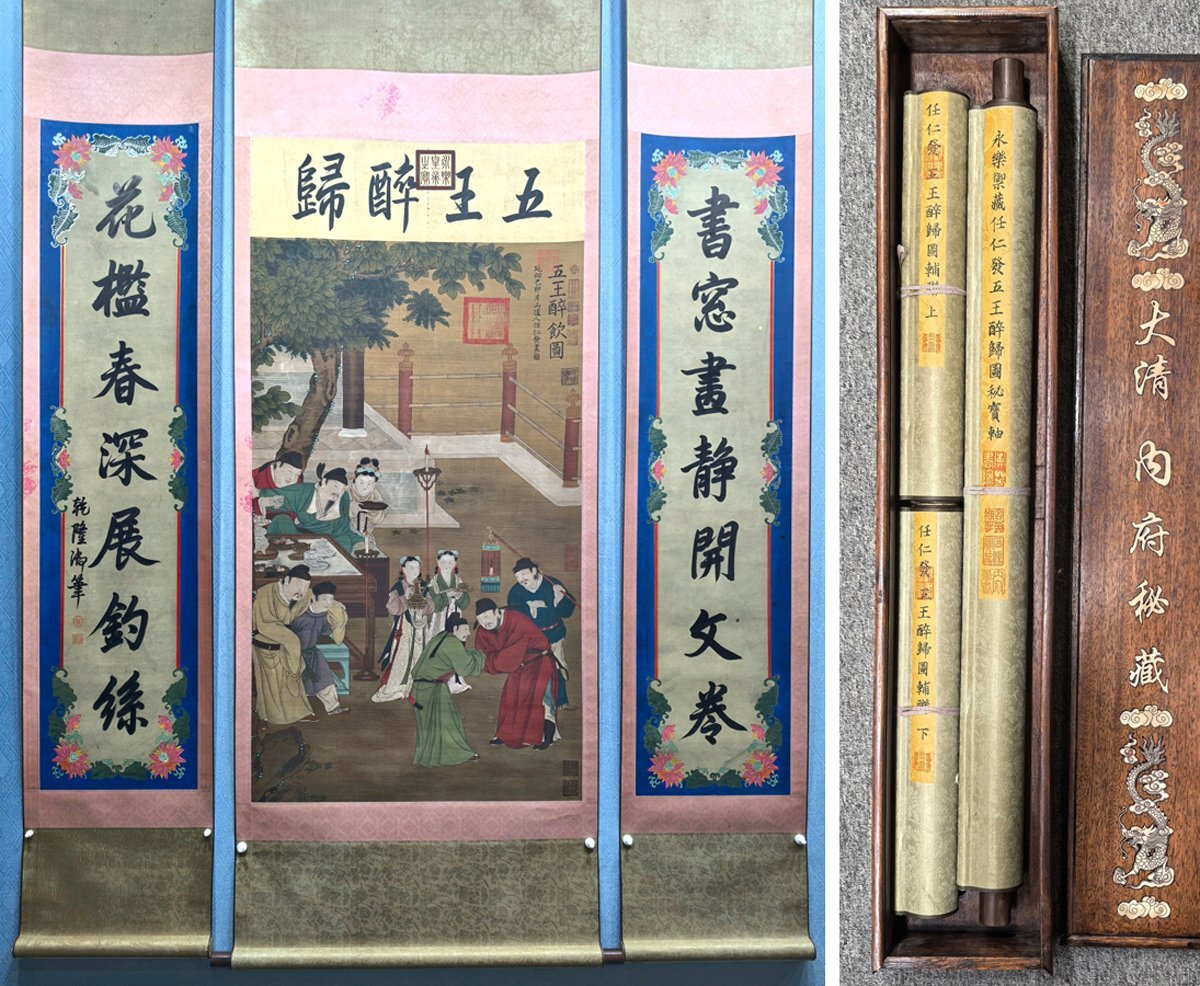 五王醉歸
書窓畫静開文卷
五王醉飲圖
花檻春深展釣絲
乾隆御筆
大清內府秘藏
永樂禦藏任仁發五王醉歸圖秘寶軸
任仁發五王醉歸圖輔聯上
任仁發五王醉歸圖輔聯下